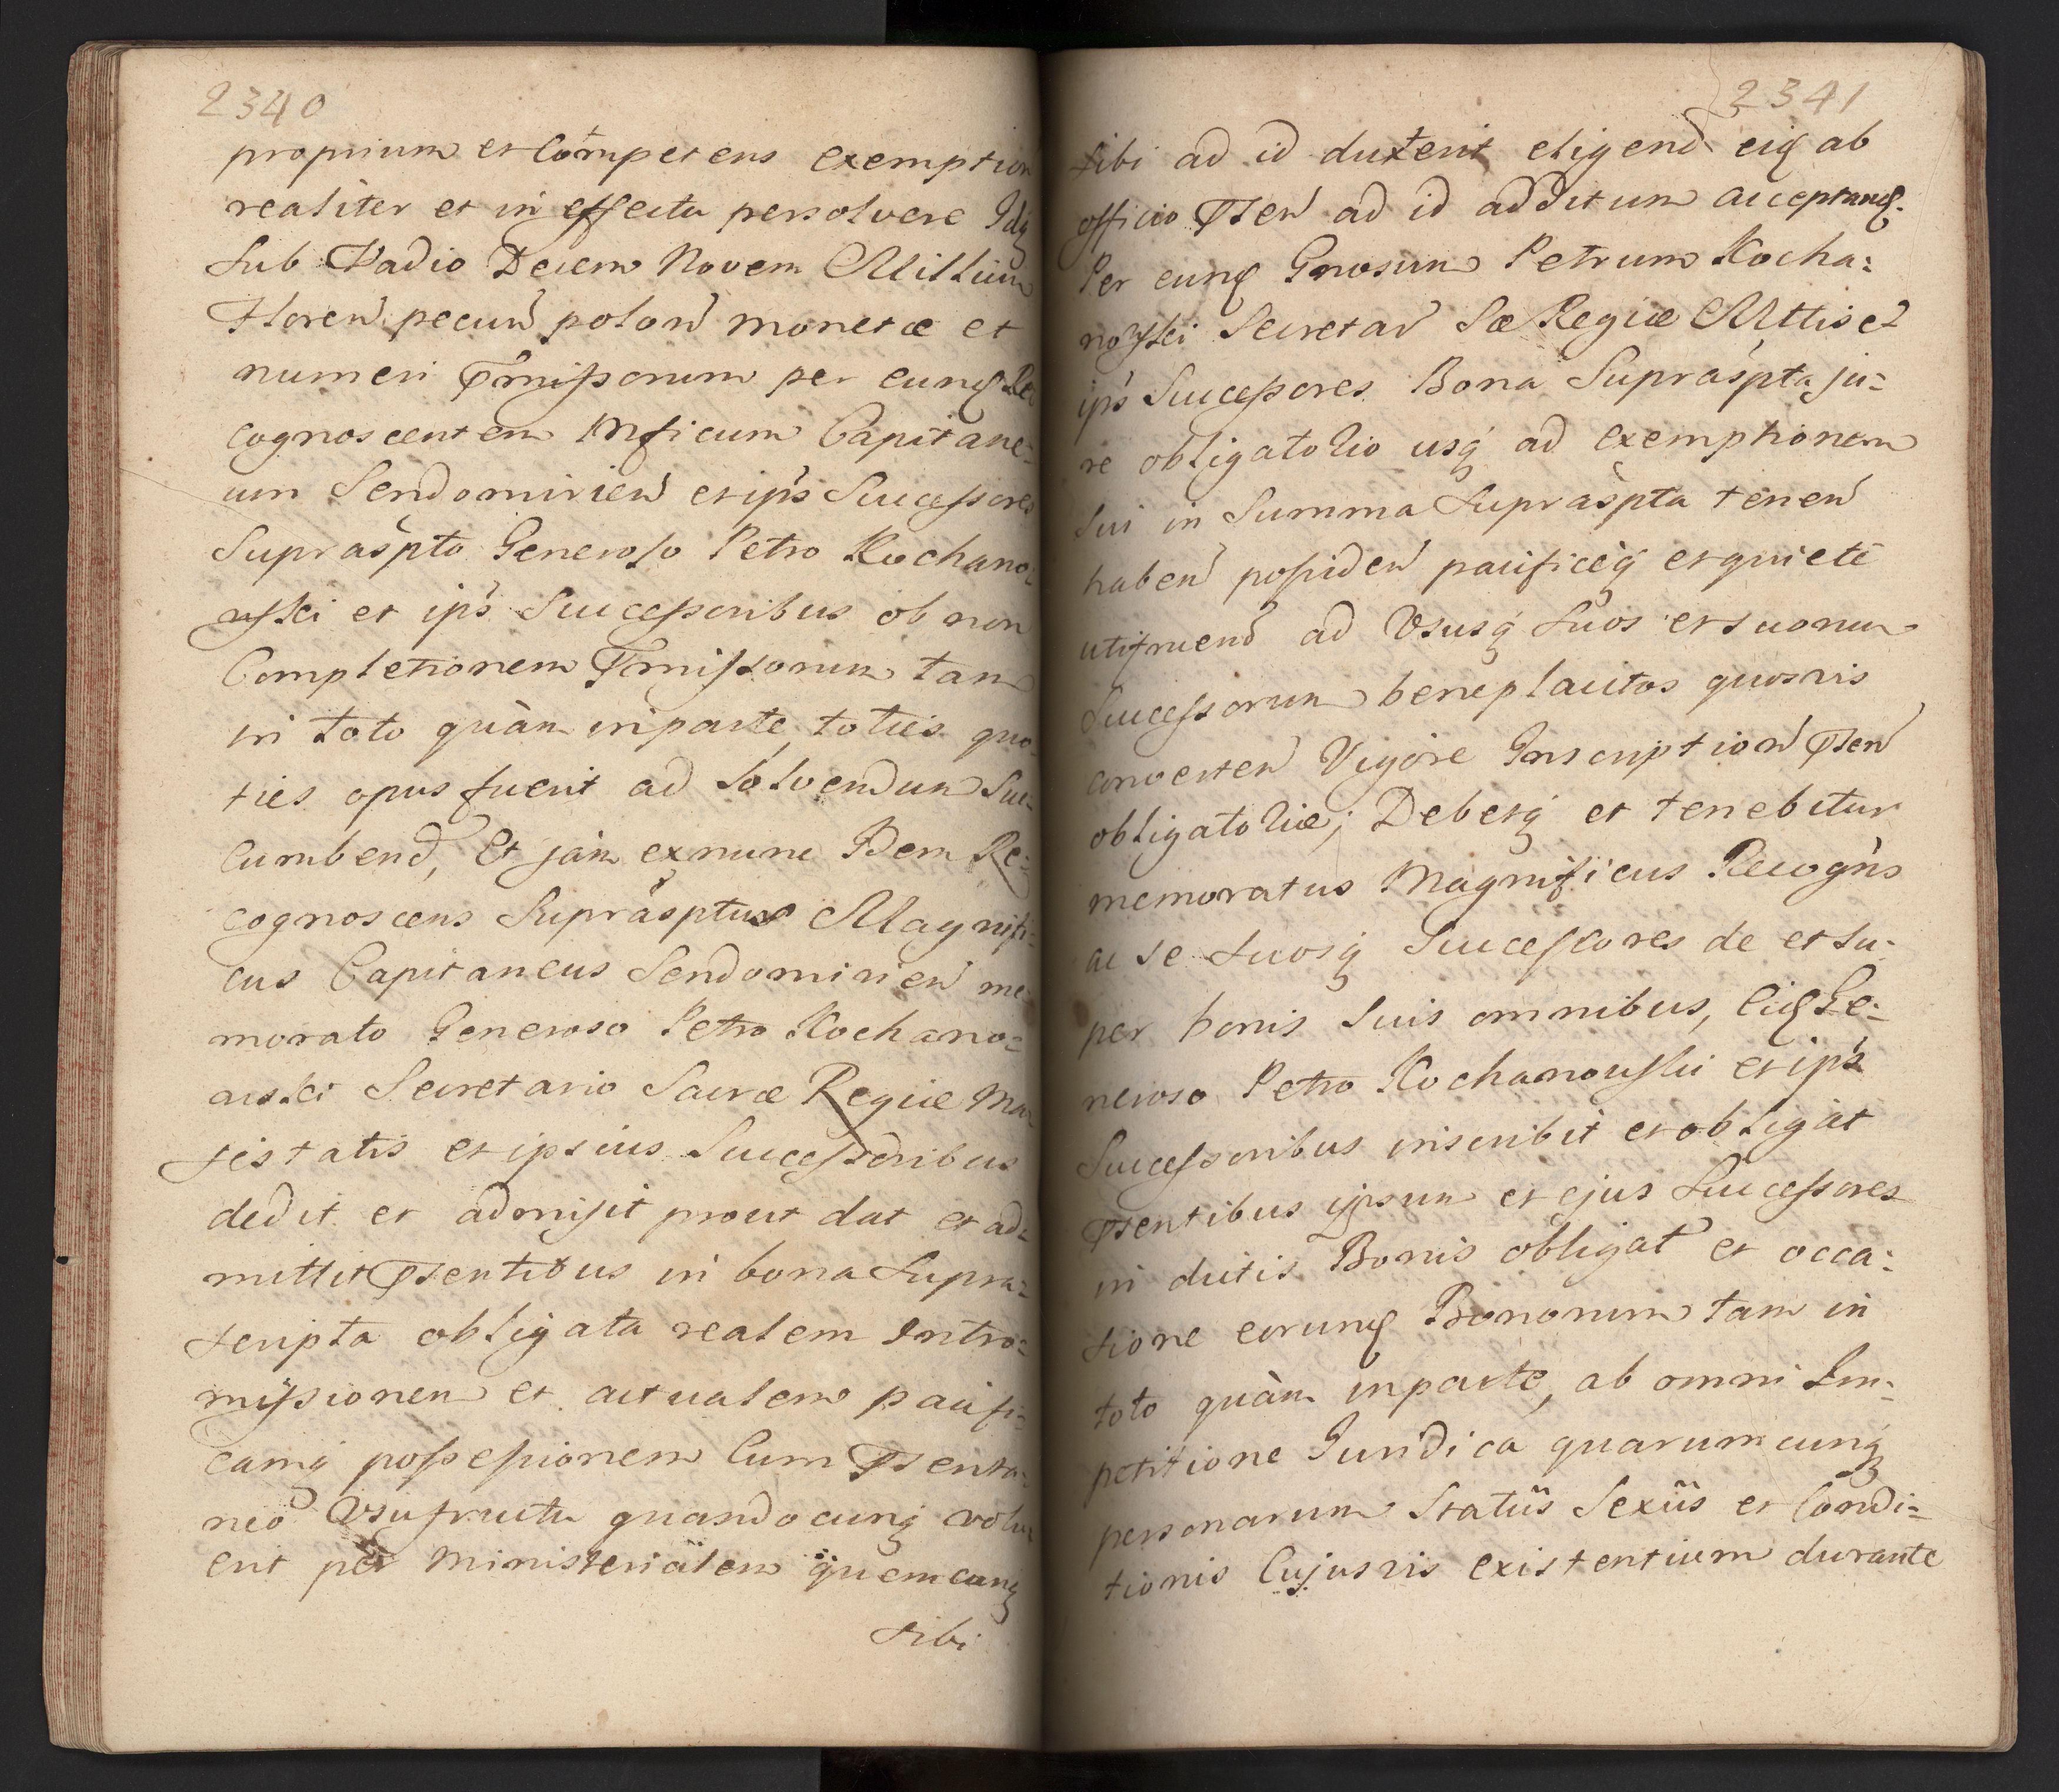 2340
proprium et Competens exemption
realiter et in effectu persolvere Idq
sub Vadio Decem Novem Millium
Floreń pecuń poloń monetæ et
numeri Pmissorum per eunď Re
cognoscentem Mficum Capitane-
um Sendomirień et ip's Successores
Supraspto Generoso Petro Kochano-
wski et ip's Successoribus ob non
Completionem Pmissorum tam
in toto quàm in parte, toties quo
ties opus fuerit ad Solvendum Suc-
cumbend, Et jam ex nunc Idem Re-
cognoscens Supràsptus Magnifi-
cus Capitaneus Sendomirień me-
morato Generoso Petro Kochano-
wski Secretario Sacræ Regiæ Ma
jestatis et ipsius Successoribus
dedit et admisit prout dat et ad-
mittit Psentibus in bona supra-
scripta obligata realem Intro-
missionem et actualem pacifi-
camq possessionem Cum Psenta-
neo Usufructu quandocunq volu
erit per Ministerialem quemcunq
sibi
2341
sibi ad id duxerit eligend eiď ab
officio Pseń ad id additum acceptanď.
Per eunď Gnosum Petrum Kocha-
nowski Secretar Sæ Regiæ Mttis et
ip's Successores Bona Supraspta ju-
re obligatorio usq ad exemptionem
sui in Summa supraspta teneń
habeń possideń pacificèq et quiete
utifruend ad Ususq suos et suorum
Successorum beneplacitos quosvis
converteń Vigore Inscriptioń Pseń
obligatoriæ; Debetq et tenebitur
memoratus Magnificus Recogńs
ac se suosq Successores de et su-
per bonis suis omnibus, Eiď Ge-
neroso Petro Kochanowski et ip's
Successoribus inscribit et obligat
Psentibus ipsum et ejus Successores
in dictis Bonis obligat et occa-
sione eorunď Bonorum tam in
toto quàm in parte, ab omni Im-
petitione Juridica quarumcunq
personarum Statûs Sexûs et Condi-
tionis Cujusvis existentium durante